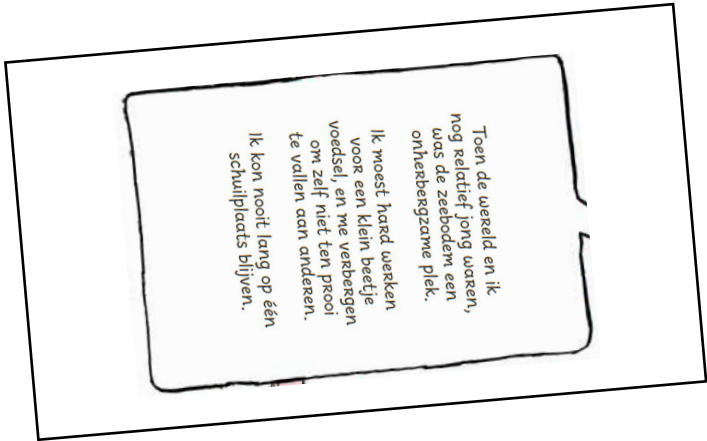 Toen de wereld en ik
nog relatief jong waren,
was de zeebodem een
onherbergzame plek.
Ik moest hard werken
voor een klein beetje
voedsel, en me verbergen
om zelf niet ten prooi
te vallen aan anderen.
Ik kon nooit lang op één
schuilplaats blijven.